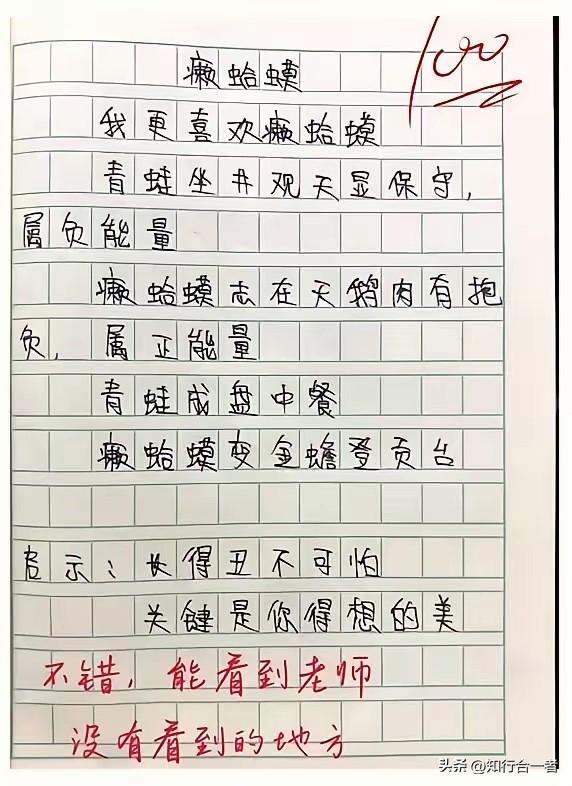 100
癞蛤蟆
我更喜欢癞蛤蟆
青蛙坐井观天显保守,
属负能量
癞蛤蟆志在天鹅肉有抱
负,属正能量
青蛙成盘中餐
癞蛤蟆变金蟾登贡台
启示:长得丑不可怕
关键是你得想的美
不错,能看到老师
没有看到的地方
头条 @知行台一者